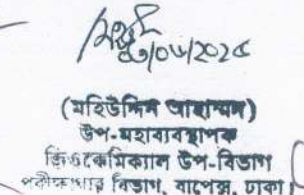 ০৩/০৬/২০২৫
(মহিউদ্দিন আহাম্মদ)
উপ-মহাব্যবস্থাপক
জিওকেমিক্যাল উপ-বিভাগ
পরীক্ষাগার বিভাগ, বাপেক্স, ঢাকা